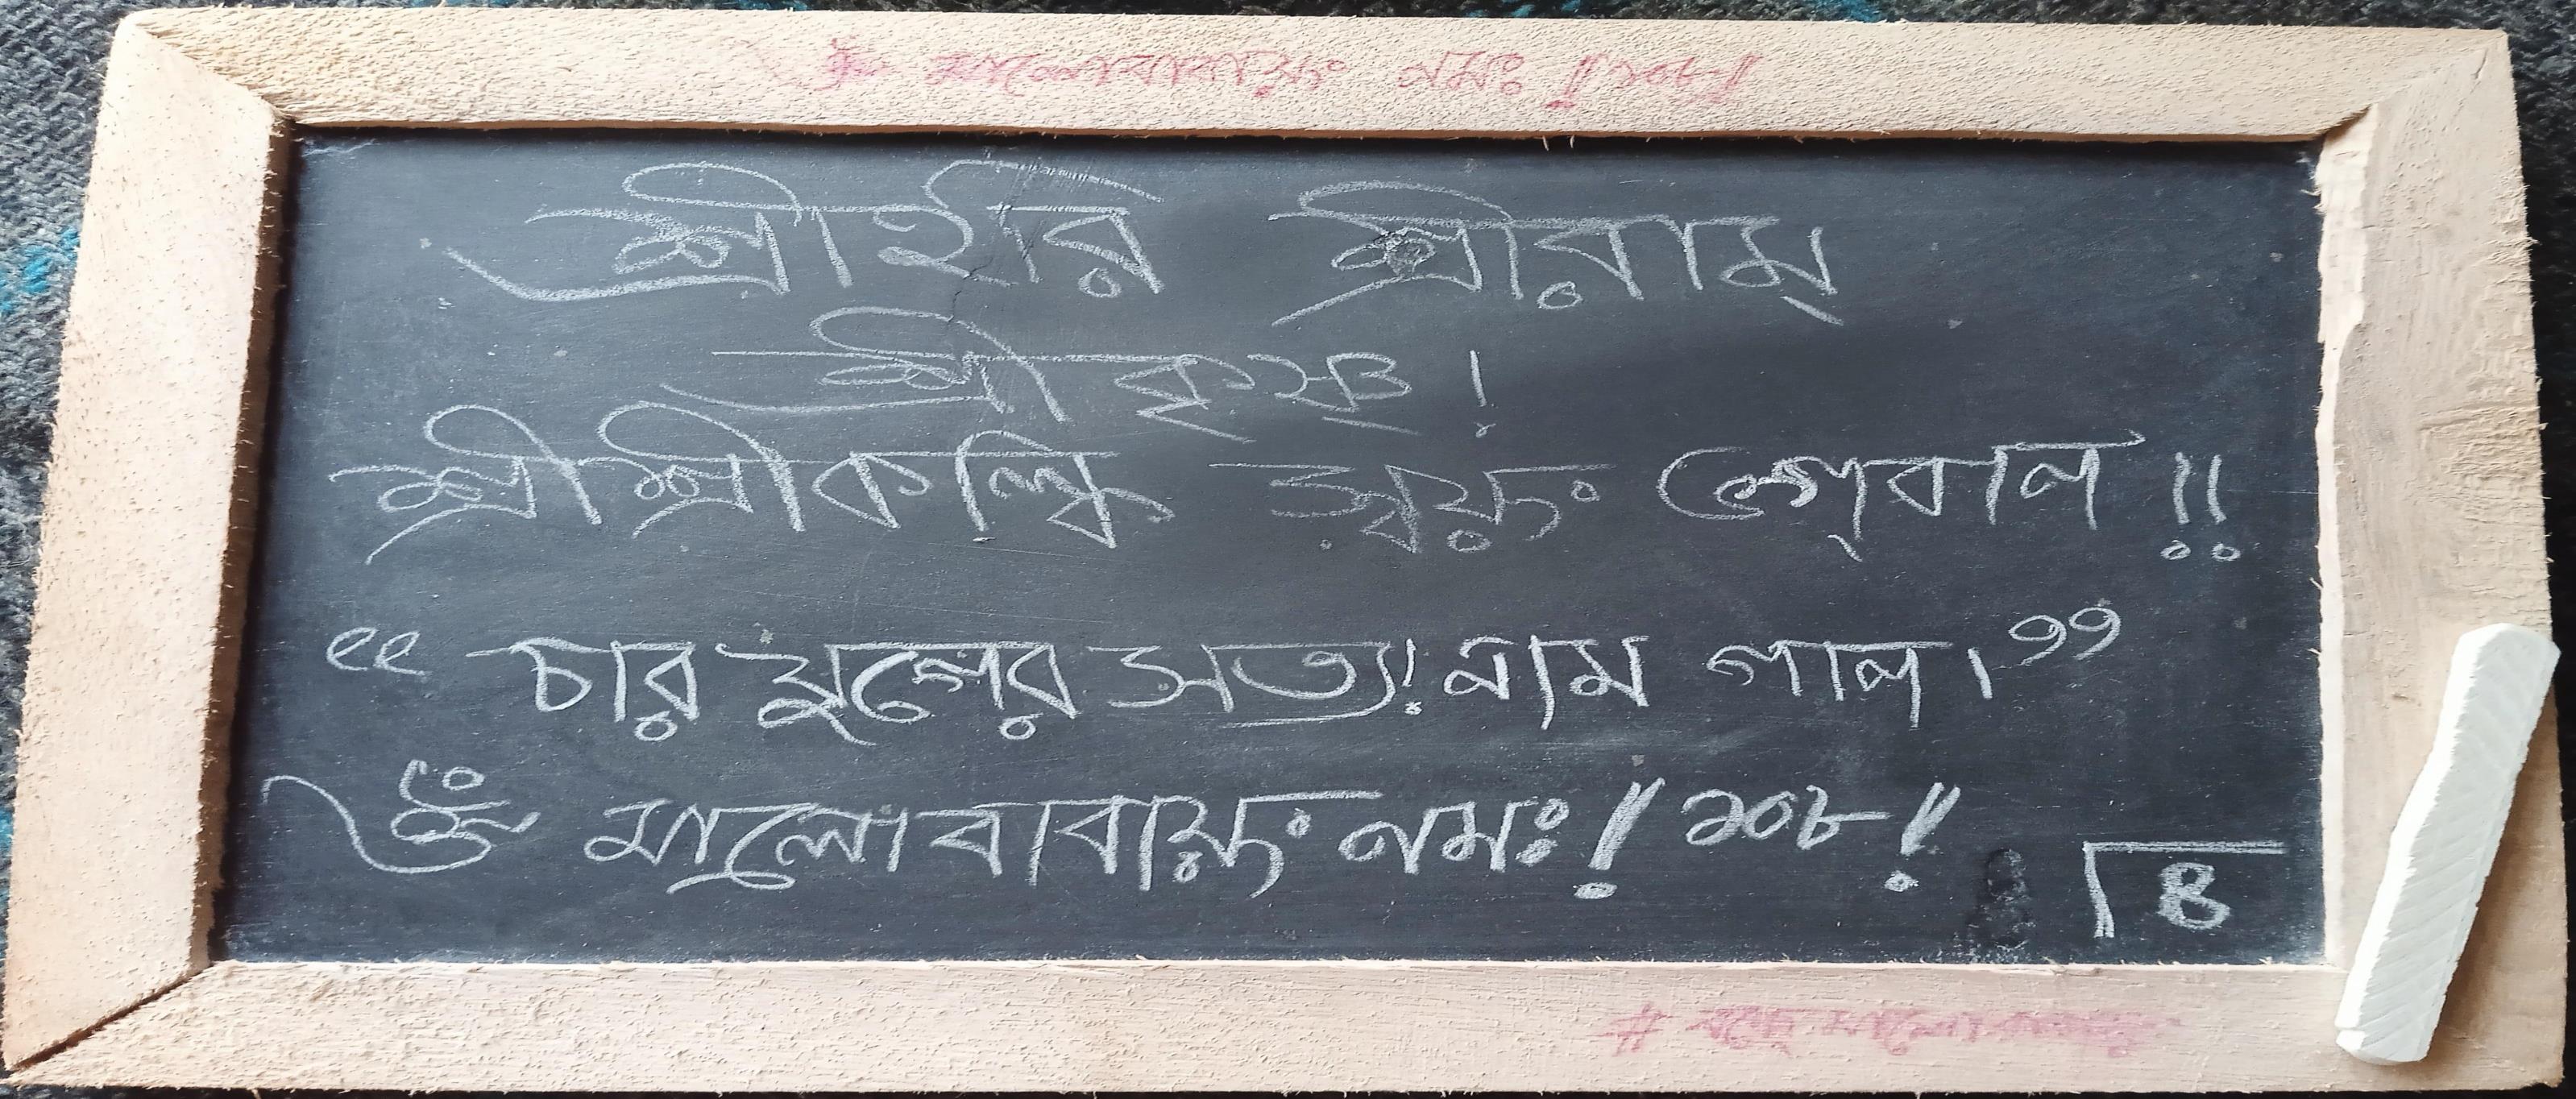 ওঁ মালোবাবায়ং নমঃ !! ১০৮ !!
শ্রীহরি শ্রীরাম
শ্রীকৃষ্ণ !
শ্রীশ্রীকল্কি স্বয়ং ভগবান !!
“ চার যুগের সত্য! নাম গান। ”
ওঁ মালোবাবায়ং নমঃ ! ১০৮ !
#